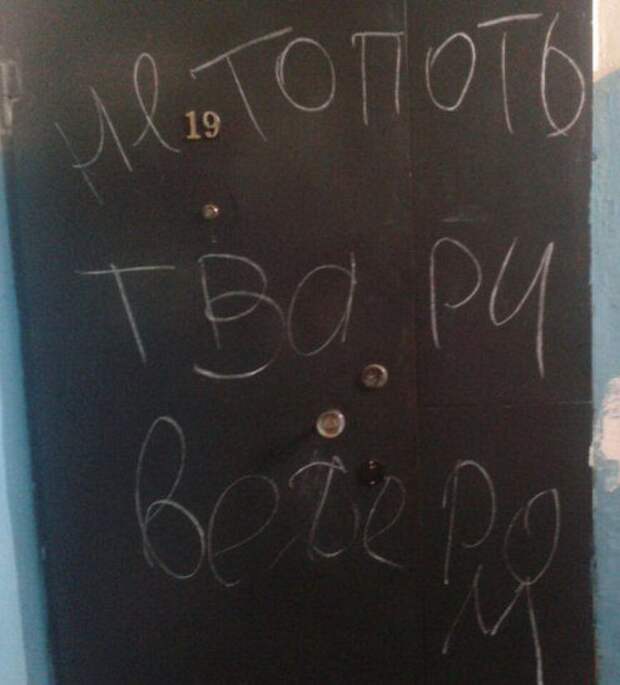 не топоть
19
твари
вечеро
м